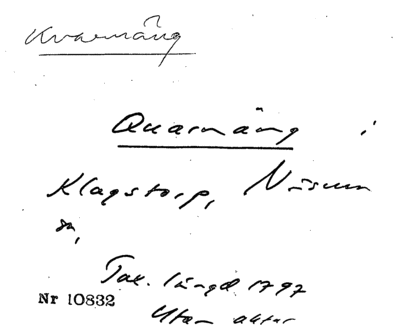 Kvarnäng
Quarnäng i
Klagstorp, Nüsum
sn,
Tax. längd 1797
Nr 10832
Utan aktnr